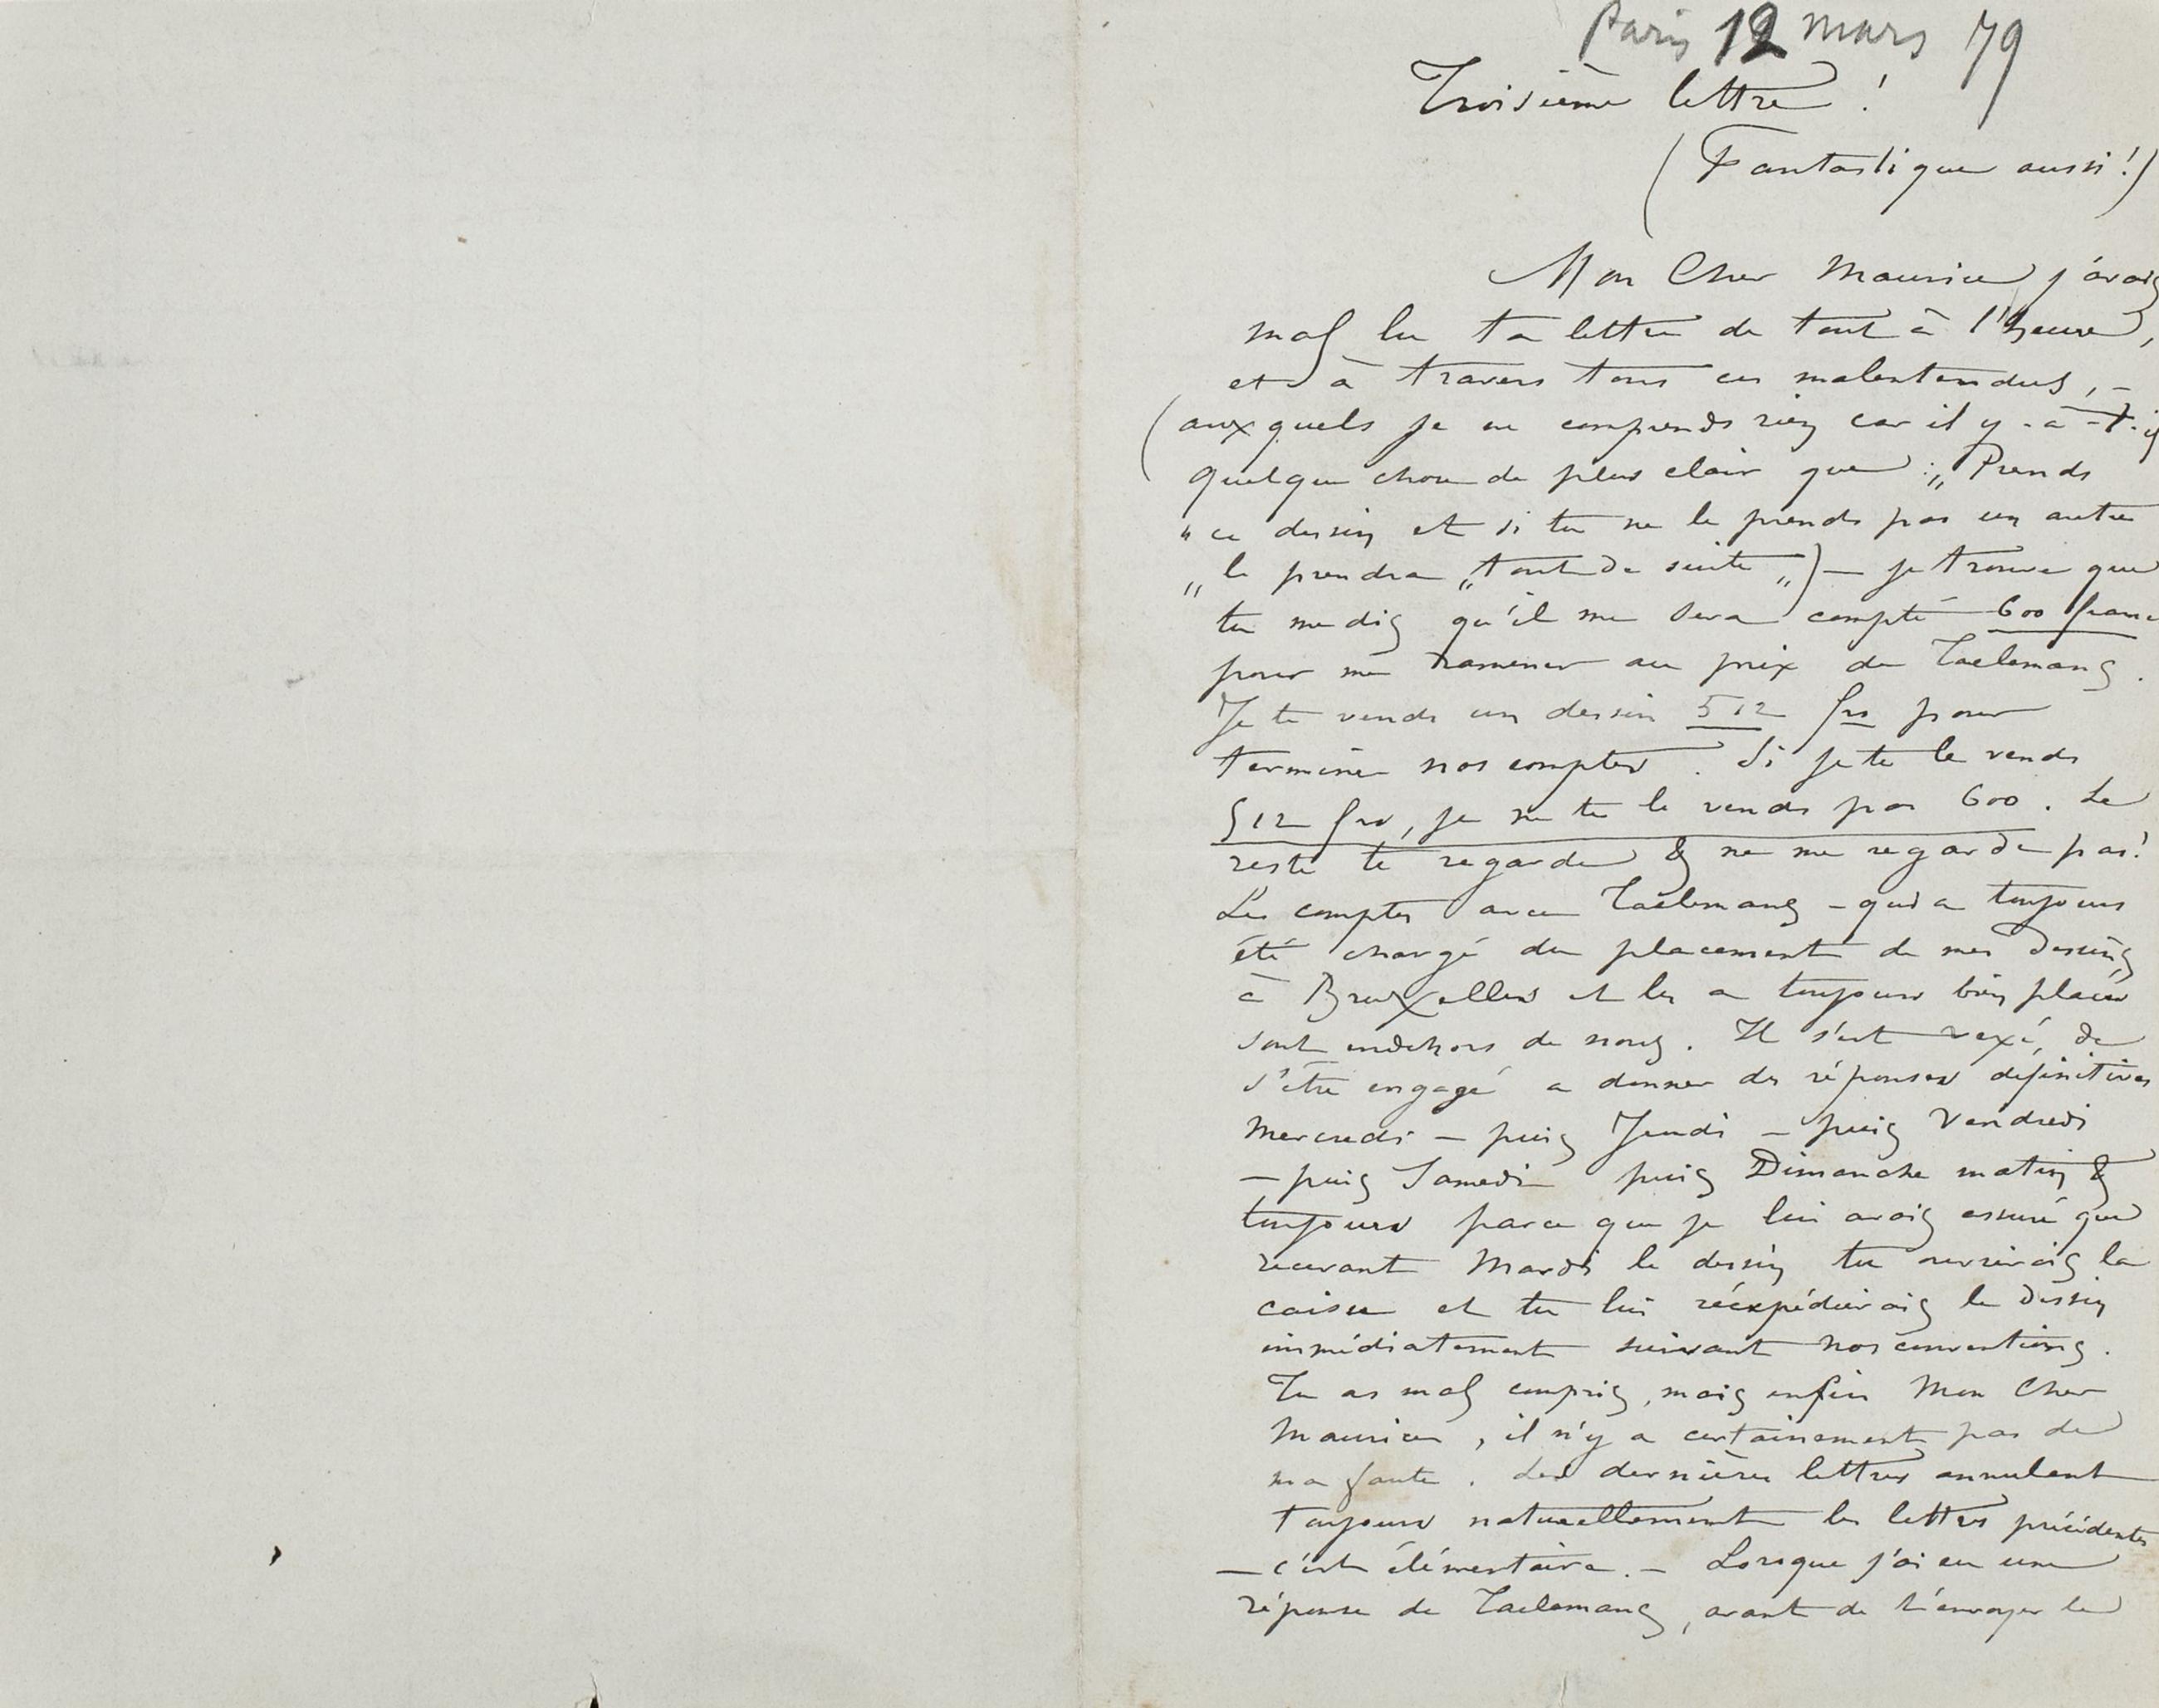 Paris 12 mars 79
Troisième lettre !
(Fantastique aussi !)
Mon Cher Maurice j'avais
mal lu ta lettre de tout à l'heure,
et à travers tous ces malentendus, –
(auxquels je ne comprends rien car il y-a-t-il
quelque chose de plus clair que : „ Prends
„ ce dessin et si tu ne le prends pas un autre
„ le prendra „ tout de suite „) – je trouve que
tu me dis qu'il me sera compté 600 francs
pour me ramener au prix de Taelemans.
Je te vends un dessin 512 frs pour
terminer nos comptes. Si je te le vends
512 frs, je ne te le vends pas 600. Le
reste te regarde & ne me regarde pas !
Les comptes avec Taelemans – qui a toujours
été chargé du placement de mes dessins
à Bruxelles et les a toujours bien placés
sont endehors de nous. Il s'est vexé, de
s'être engagé a donner des réponses définitives
Mercredi – puis Jeudi – puis Vendredi
– puis Samedi puis Dimanche matin &
toujours parce que je lui avais assuré que
recevant Mardi le dessin tu ouvrirais la
caisse et tu lui réexpédierais le dessin
immédiatement suivant nos conventions.
Tu as mal compris, mais enfin Mon Cher
Maurice, il n'y a certainement pas de
ma faute. Les dernières lettres annulent
toujours naturellement les lettres précédentes
– c'est élémentaire. – Lorsque j'ai eu une
réponse de Taelemans, avant de t'envoyer le